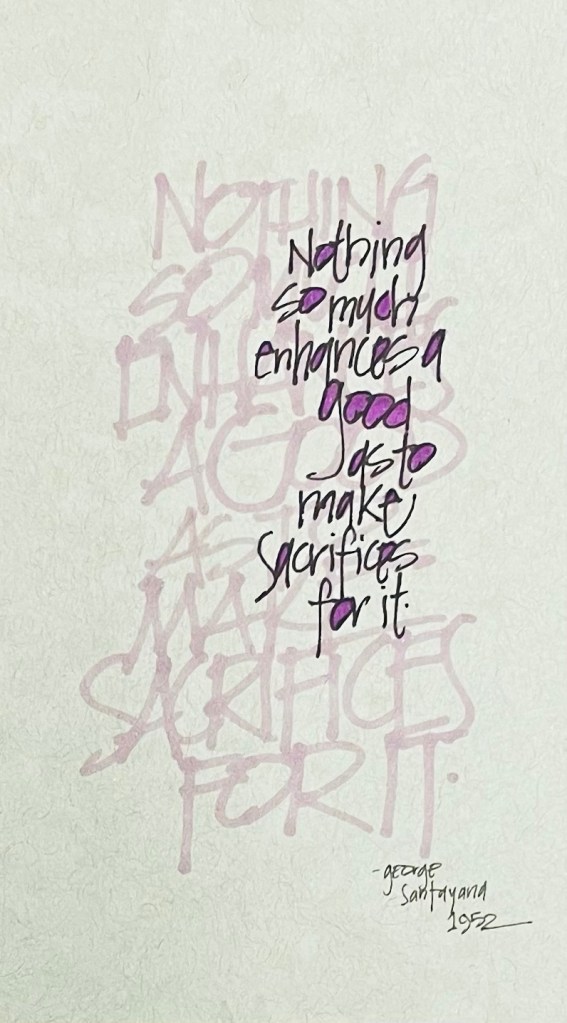 NOTHING
SO MUCH
ENHANCES
A GOOD
AS TO
MAKE
SACRIFICES
FOR IT.
Nothing
so much
enhances a
good
as to
make
sacrifices
for it.
-george
Santayana
1952